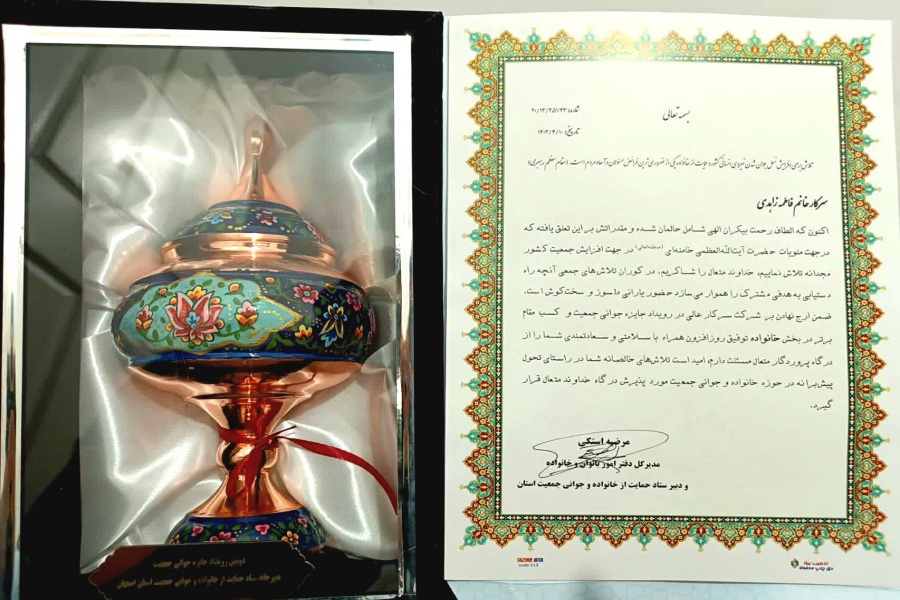 بسمه تعالی
شماره: ۲۰/۱۴/۲۵/۴۲
تاریخ: ۱۴۰۳/۴/۱۰
تلاش برای افزایش نسل جوان شدن نیروی انسانی کشور و حمایت از خانواده یکی از ضروری ترین فرائض مسئولان و آحاد مردم است. (مقام معظم رهبری)
سرکار خانم فاطمه زاهدی
اکنون که الطاف رحمت بیکران الهی شامل حالمان شده و مقدراتش بر این تعلق یافته که
در جهت منویات حضرت آیت‌الله‌العظمی خامنه‌ای (مدظله‌العالی) در جهت افزایش جمعیت کشور
مجدانه تلاش نماییم، خداوند متعال را شاکریم. در کوران تلاش‌های جمعی آنچه راه
دستیابی به هدفی مشترک را هموار می‌سازد حضور یارانی دلسوز و سخت‌کوش است.
ضمن ارج نهادن بر شرکت سرکار عالی در رویداد جایزه جوانی جمعیت و کسب مقام
برتر در بخش خانواده توفیق روزافزون همراه با سلامتی و سعادتمندی شما را از
درگاه پروردگار متعال مسئلت دارم. امید است تلاش‌های خالصانه شما در راستای تحول
پیش‌برانه در حوزه خانواده و جوانی جمعیت مورد پذیرش درگاه خداوند متعال قرار
گیرد.
مرضیه استکی
مدیرکل دفتر امور بانوان و خانواده
و دبیر ستاد حمایت از خانواده و جوانی جمعیت استان
دومین رویداد جایزه جوانی جمعیت
دبیرخانه ستاد حمایت از خانواده و جوانی جمعیت استان اصفهان
تذهیب برنا
حق چاپ محفوظ